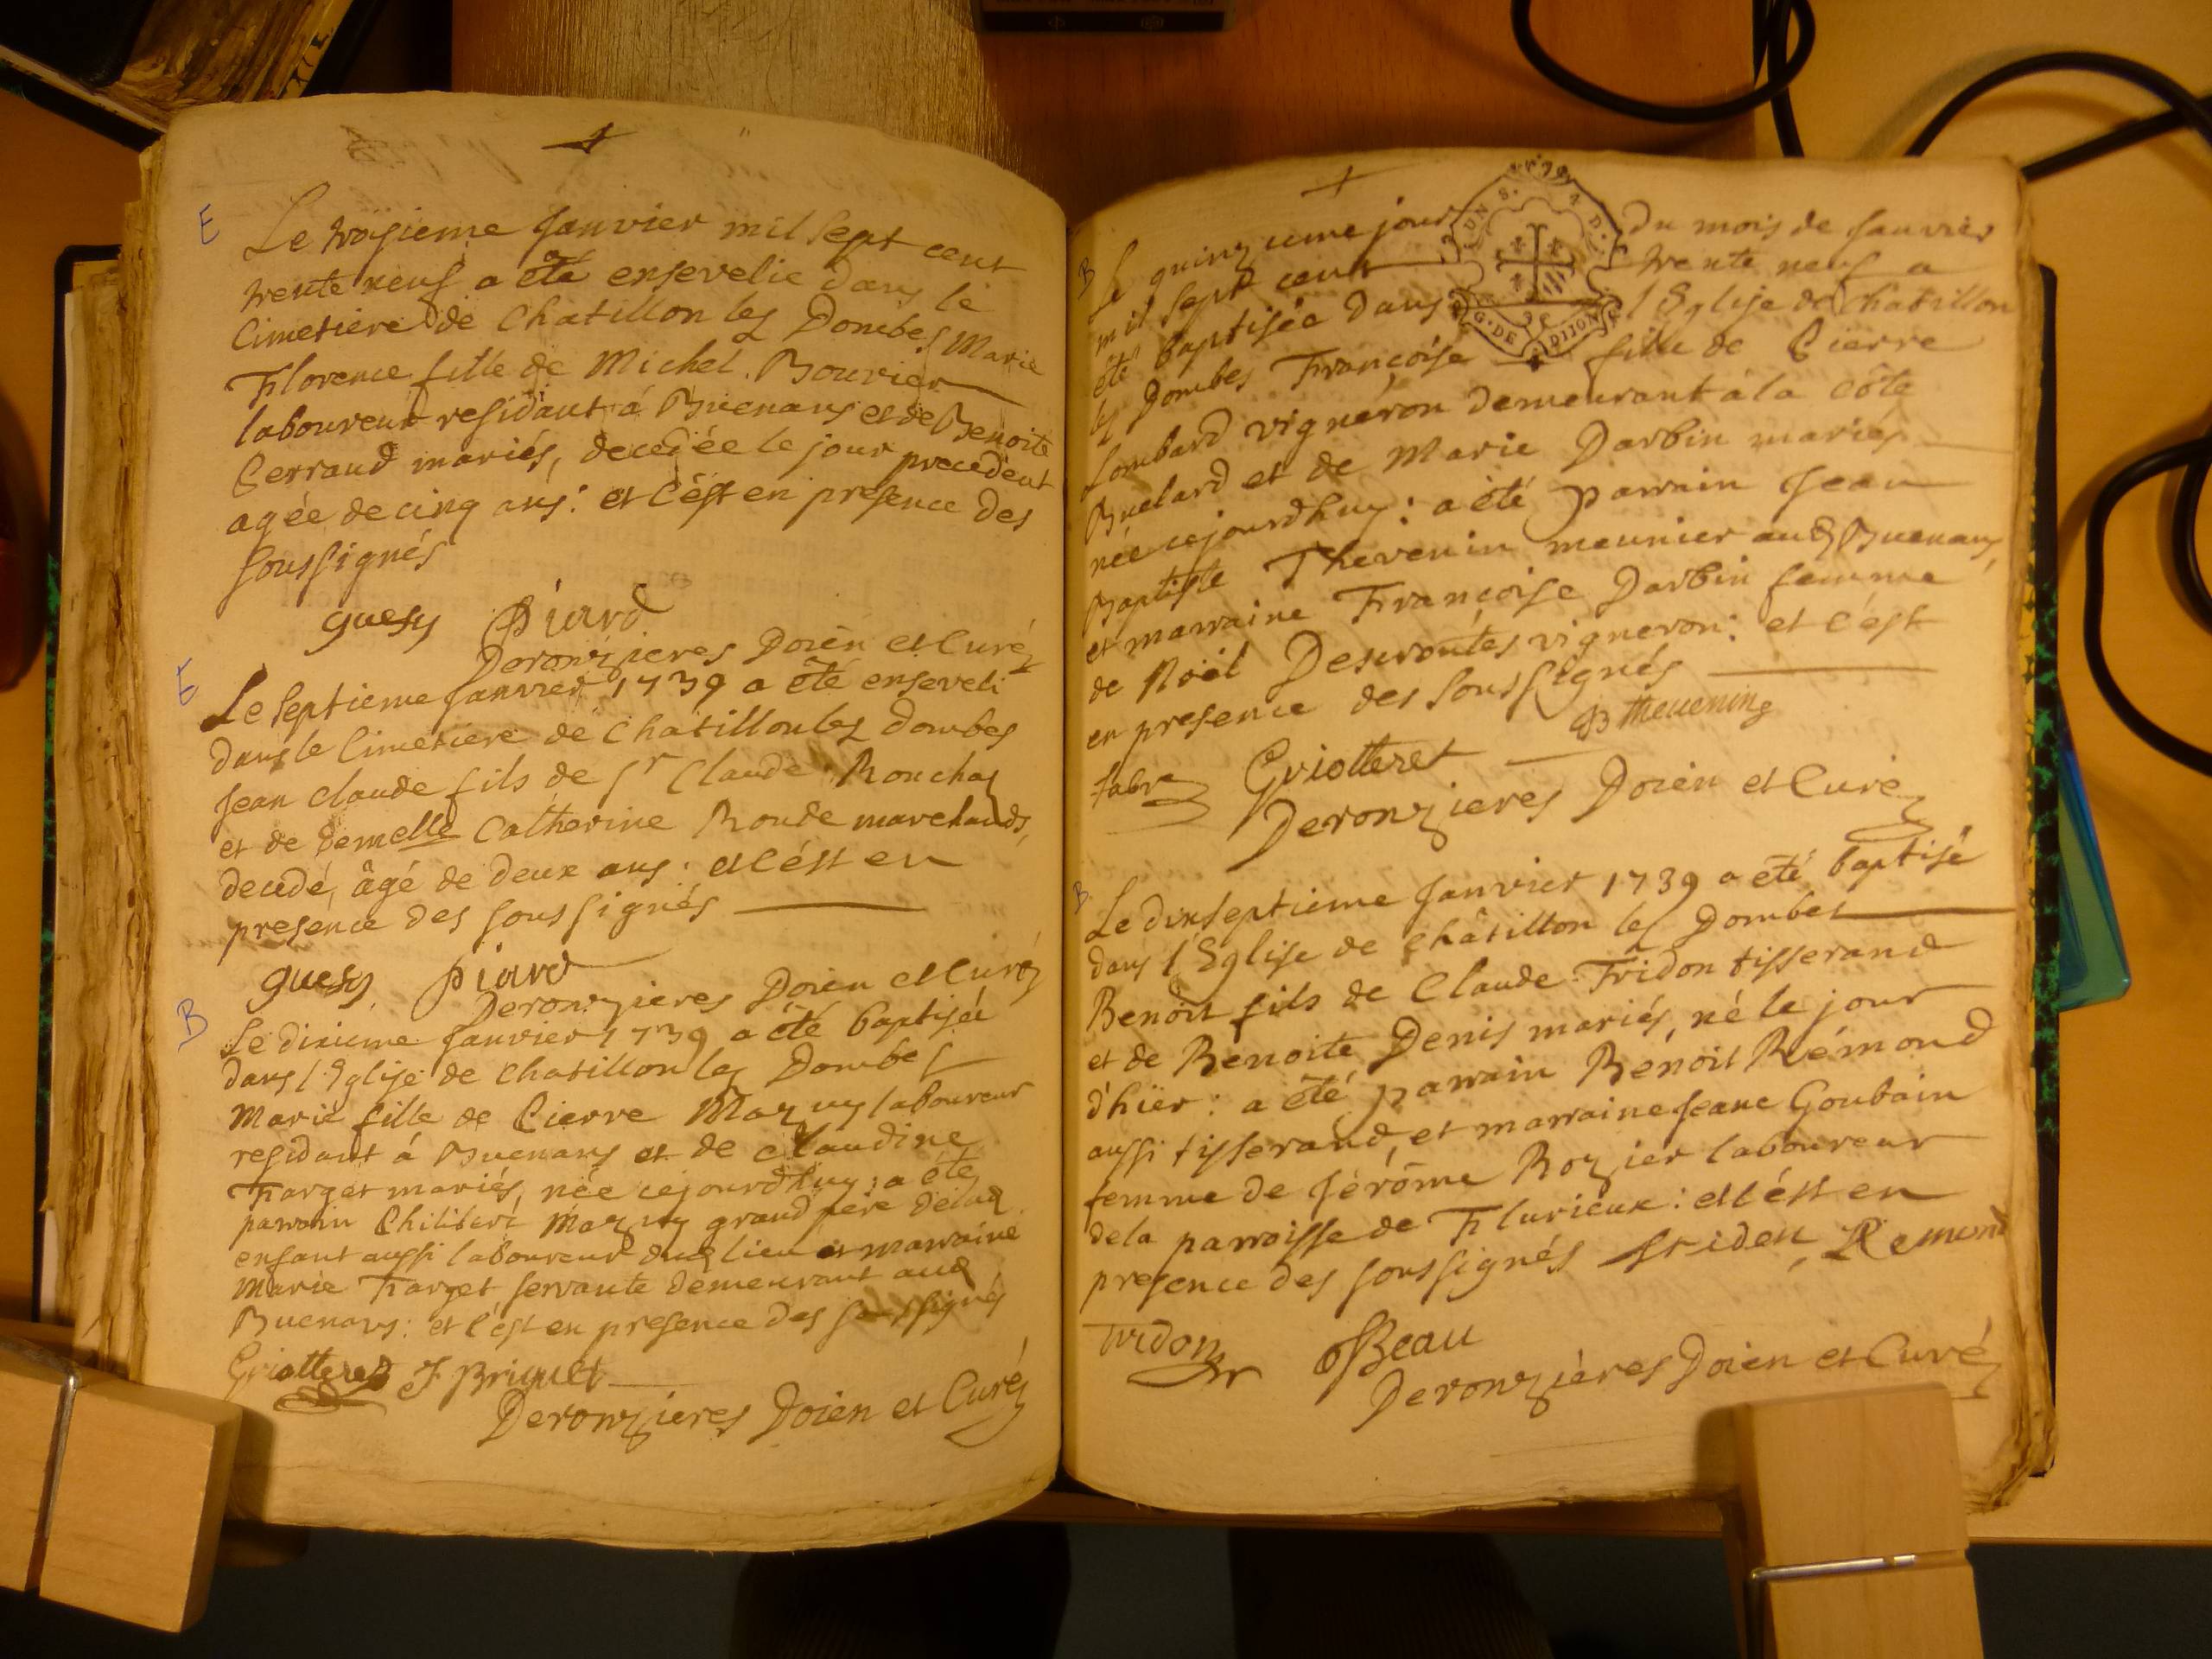 E
Le troisieme Janvier mil sept cent
trente neuf a été ensevelie dans le
Cimetiere de Chatillon les Dombes Marie
Florence fille de Michel Bouvier
laboureur residant à Buenans et de Benoite
Perraud mariés, decedée le jour precedent
agée de cinq ans: et c'est en presence des
soussignés
guesy Piard
Deronzieres Doïen et Curé
E
Le septieme Janvier 1739 a été enseveli
dans le Cimetiere de Chatillon les Dombes
Jean Claude fils de Sr Claude Ronchas
et de Demelle Catherine Ronde marchands,
decedé, âgé de deux ans: et c'est en
presence des soussignés
guesy Piard
Deronzieres Doïen et Curé
B
Le dixieme Janvier 1739 a été baptisée
dans l'Eglise de Chatillon les Dombes
Marie fille de Pierre Mazuy laboureur
residant à Buenans et de Claudine
Farget mariés, née cejourdhuy: a été
parrain Philibert Mazuy grand pere de lad
enfant aussi laboureur dud lieu et marraine
Marie Farget servante demeurant aud
Buenans: et c'est en presence des soussignés
Griotteret J Briquet
Deronzieres Doïen et Curé
B
Le quinzieme jour du mois de Janvier
mil sept cent trente neuf a
été baptisée dans l'Eglise de Chatillon
les Dombes Françoise fille de Pierre
Lombard vigneron demeurant à la côte
Buelard et de Marie Darbin mariés
née cejourdhuy: a été parrain Jean
Baptiste Thevenin meunier aud Buenans,
et marraine Françoise Darbin femme
de Noël Desvoutes vigneron: et c'est
en presence des soussignés
B Thevening
fabre Griotteret
Deronzieres Doïen et Curé
G. DE DIJON
B
Le dixseptieme Janvier 1739 a été baptisé
dans l'Eglise de Châtillon les Dombes
Benoit fils de Claude Tridon tisserand
et de Benoite Denis mariés, né le jour
d'hier: a été parrain Benoit Rémond
aussi tisserand, et marraine Jeane Goubain
femme de Jérôme Rozier laboureur
de la parroisse de Flurieux: et c'est en
presence des soussignés triden, Remond
Tridon Beau
Deronzières Doïen et Curé